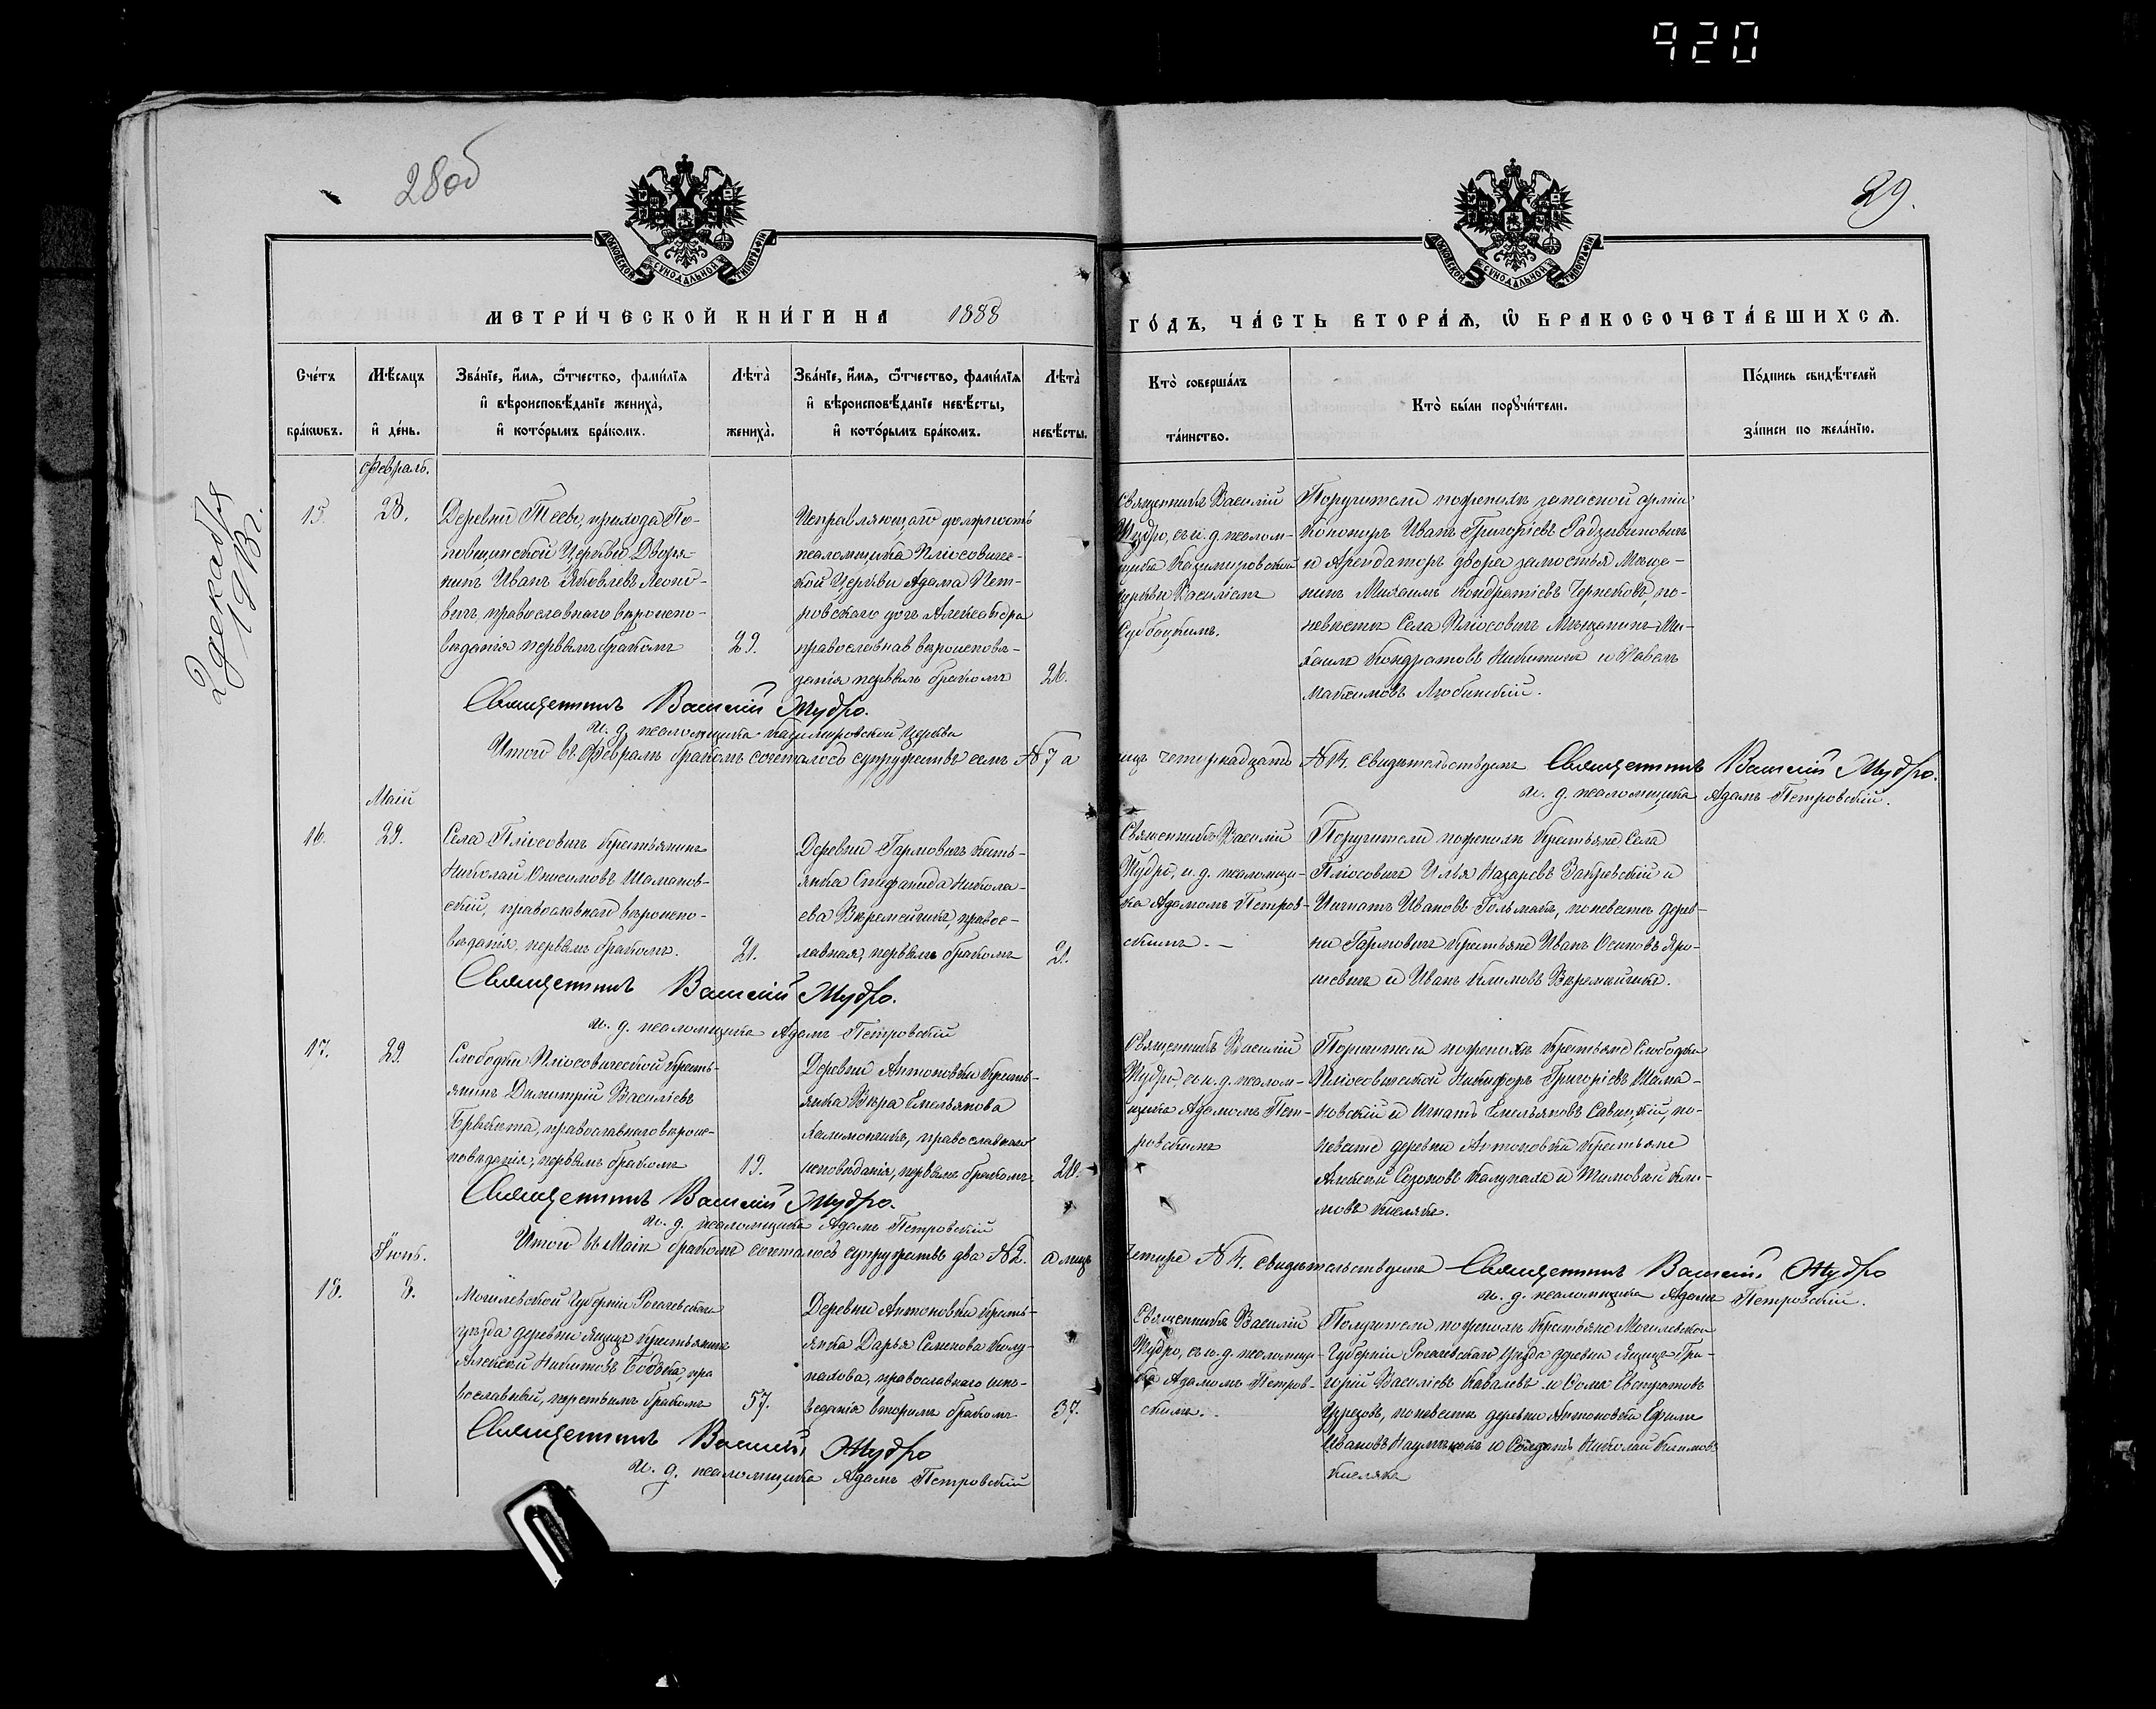 920
28 об
29.
2 декабря
19 В г.
МОСКОВСКОЙ СУНОДАЛЬНОЙ ТИПОГРАФІИ
МОСКОВСКОЙ СУНОДАЛЬНОЙ ТИПОГРАФІИ
МЕТРИ́ЧЕСКОЙ КНИ́ГИ НА 1888
ГО́ДЪ, ЧА́СТЬ ВТОРА́Ѧ, Ѡ҆ БРАКОСОЧЕТА́ВШИХСѦ.
Сче́тъ
бра́кѡвъ.
Мѣ́сяцъ
и҆ де́нь.
Зва́нїе, и҆́мя, ѻ҆́тчество, фами́лїя
и҆ вѣроисповѣ́данїе жениха̀,
и҆ кото́рымъ бра́комъ.
Лѣта̀
жениха̀.
Зва́нїе, и҆́мя, ѻ҆́тчество, фами́лїя
и҆ вѣроисповѣ́данїе невѣ́сты,
и҆ кото́рымъ бра́комъ.
Лѣта̀
невѣ́сты.
Кто̀ соверша́лъ
та́инство.
Кто̀ бы́ли порꙋчи́тели.
По́дпись свидѣ́телей
за́писи по жела́нїю.
Февраль.
15.
28.
Деревни Теевъ, прихода По-
повщинской Церкви Дворя-
нинъ Иванъ Яковлевъ Леоно-
вичъ православнаго вѣроиспо-
вѣданія первымъ бракомъ
29.
Исправляющаго должность
псаломщика Плюсовиче-
кой Церкви Адама Пет-
ровскаго дочь Александра
православнаго вѣроисповѣ-
данія первымъ бракомъ
26.
Священникъ Василій
Мудро, съ и. д. псалом-
щика Казимировской
церкви Василіемъ
Субоцкимъ.
Поручители по женихѣ запасной арміи
Канониръ Иванъ Григорьевъ Радзивиновичъ
и Арендаторъ двора замостья Мѣща-
нинъ Михаилъ Кондратьевъ Чернековъ, по-
невѣстѣ Села Плюсовичъ Мѣщанинъ Ми-
хаилъ Кондратовъ Никитинъ и Павелъ
Максимовъ Любинскій.
Священникъ Василій Мудро.
И. д. псаломщика Казимировской церкви
Итого въ Февралѣ бракомъ сочеталось супружествъ семь № 7 а
лицъ четырнадцать № 14. свидѣтельствуемъ Священникъ Василій Мудро.
и. д. псаломщика Адамъ Петровскій.
Маій
16.
29.
Села Плюсовичъ Крестьянинъ
Николай Онисимовъ Шаманов-
скій, православнаго вѣроиспо-
вѣданія, первымъ бракомъ.
21.
Деревни Гармовичъ Кресть-
янка Стефанида Никола-
ева Веремейчикъ, правос-
лавная, первымъ бракомъ
21.
Священникъ Василій
Мудро, и. д. псаломщи-
ка Адамомъ Петров-
скимъ. –
Поручители по женихѣ Крестьяне Села
Плюсовичъ Илья Назаровъ Закревскій и
Игнатъ Ивановъ Гольмакъ, по невѣстѣ дерев-
ни Гармовичъ Крестьяне Иванъ Осиповъ Яро-
шевичъ и Иванъ Климовъ Веремейчикъ.
Священникъ Василій Мудро.
и. д. псаломщика Адамъ Петровскій
17.
29.
Слободки Плюсовической Кресть-
янинъ Димитрій Васильевъ
православнаго вѣроис-
повѣданія, первымъ бракомъ
19.
Деревни Антоновки Кресть-
янка Вѣра Емельянова
православнаго
исповѣданія, первымъ бракомъ
20.
Священникъ Василій
Мудро, съ и. д. псалом-
щика Адамомъ Пет-
ровскимъ
Поручители по женихѣ Крестьяне Слободки
Плюсовической Никифоръ Григорьевъ Шама-
новскій и Игнатъ Емельяновъ Савицкій, по-
невѣстѣ деревни Антоновки Крестьяне
Алексѣй Сезоновъ Калупаха и Тимофей Кли-
мовъ Киселякъ.
Священникъ Василій Мудро.
и. д. псаломщика Адамъ Петровскій
Итого въ Маіѣ бракомъ сочеталось супружествъ два № 2. а лицъ
четыре № 4. свидѣтельствуемъ Священникъ Василій Мудро
и. д. псаломщика Адамъ Петровскій.
Іюнь.
18.
8.
Могилевской Губерніи Рогачевскаго
уѣзда деревни Ящицъ Крестьянинъ
Алексѣй Никитовъ Бобека, пра
вославный, третьимъ бракомъ
57.
Деревни Антоновки Кресть-
янка Дарья Семенова Калу-
пахова, православнаго испо-
вѣданія вторымъ бракомъ
37.
Священникъ Василій
Мудро, съ и. д. псаломщи-
ка Адамомъ Петров-
скимъ. –
Поручители по женихѣ Крестьяне Могилевской
Губерніи Рогачевскаго Уѣзда деревни Ящицъ Гри-
горій Васильевъ Ковалевъ и Фома Евстратовъ
по невѣстѣ деревни Антоновки Ефимъ
Ивановъ Наумчикъ и Солдатъ Николай Климовъ
Киселякъ
Священникъ Василій Мудро
и. д. псаломщика Адамъ Петровскій